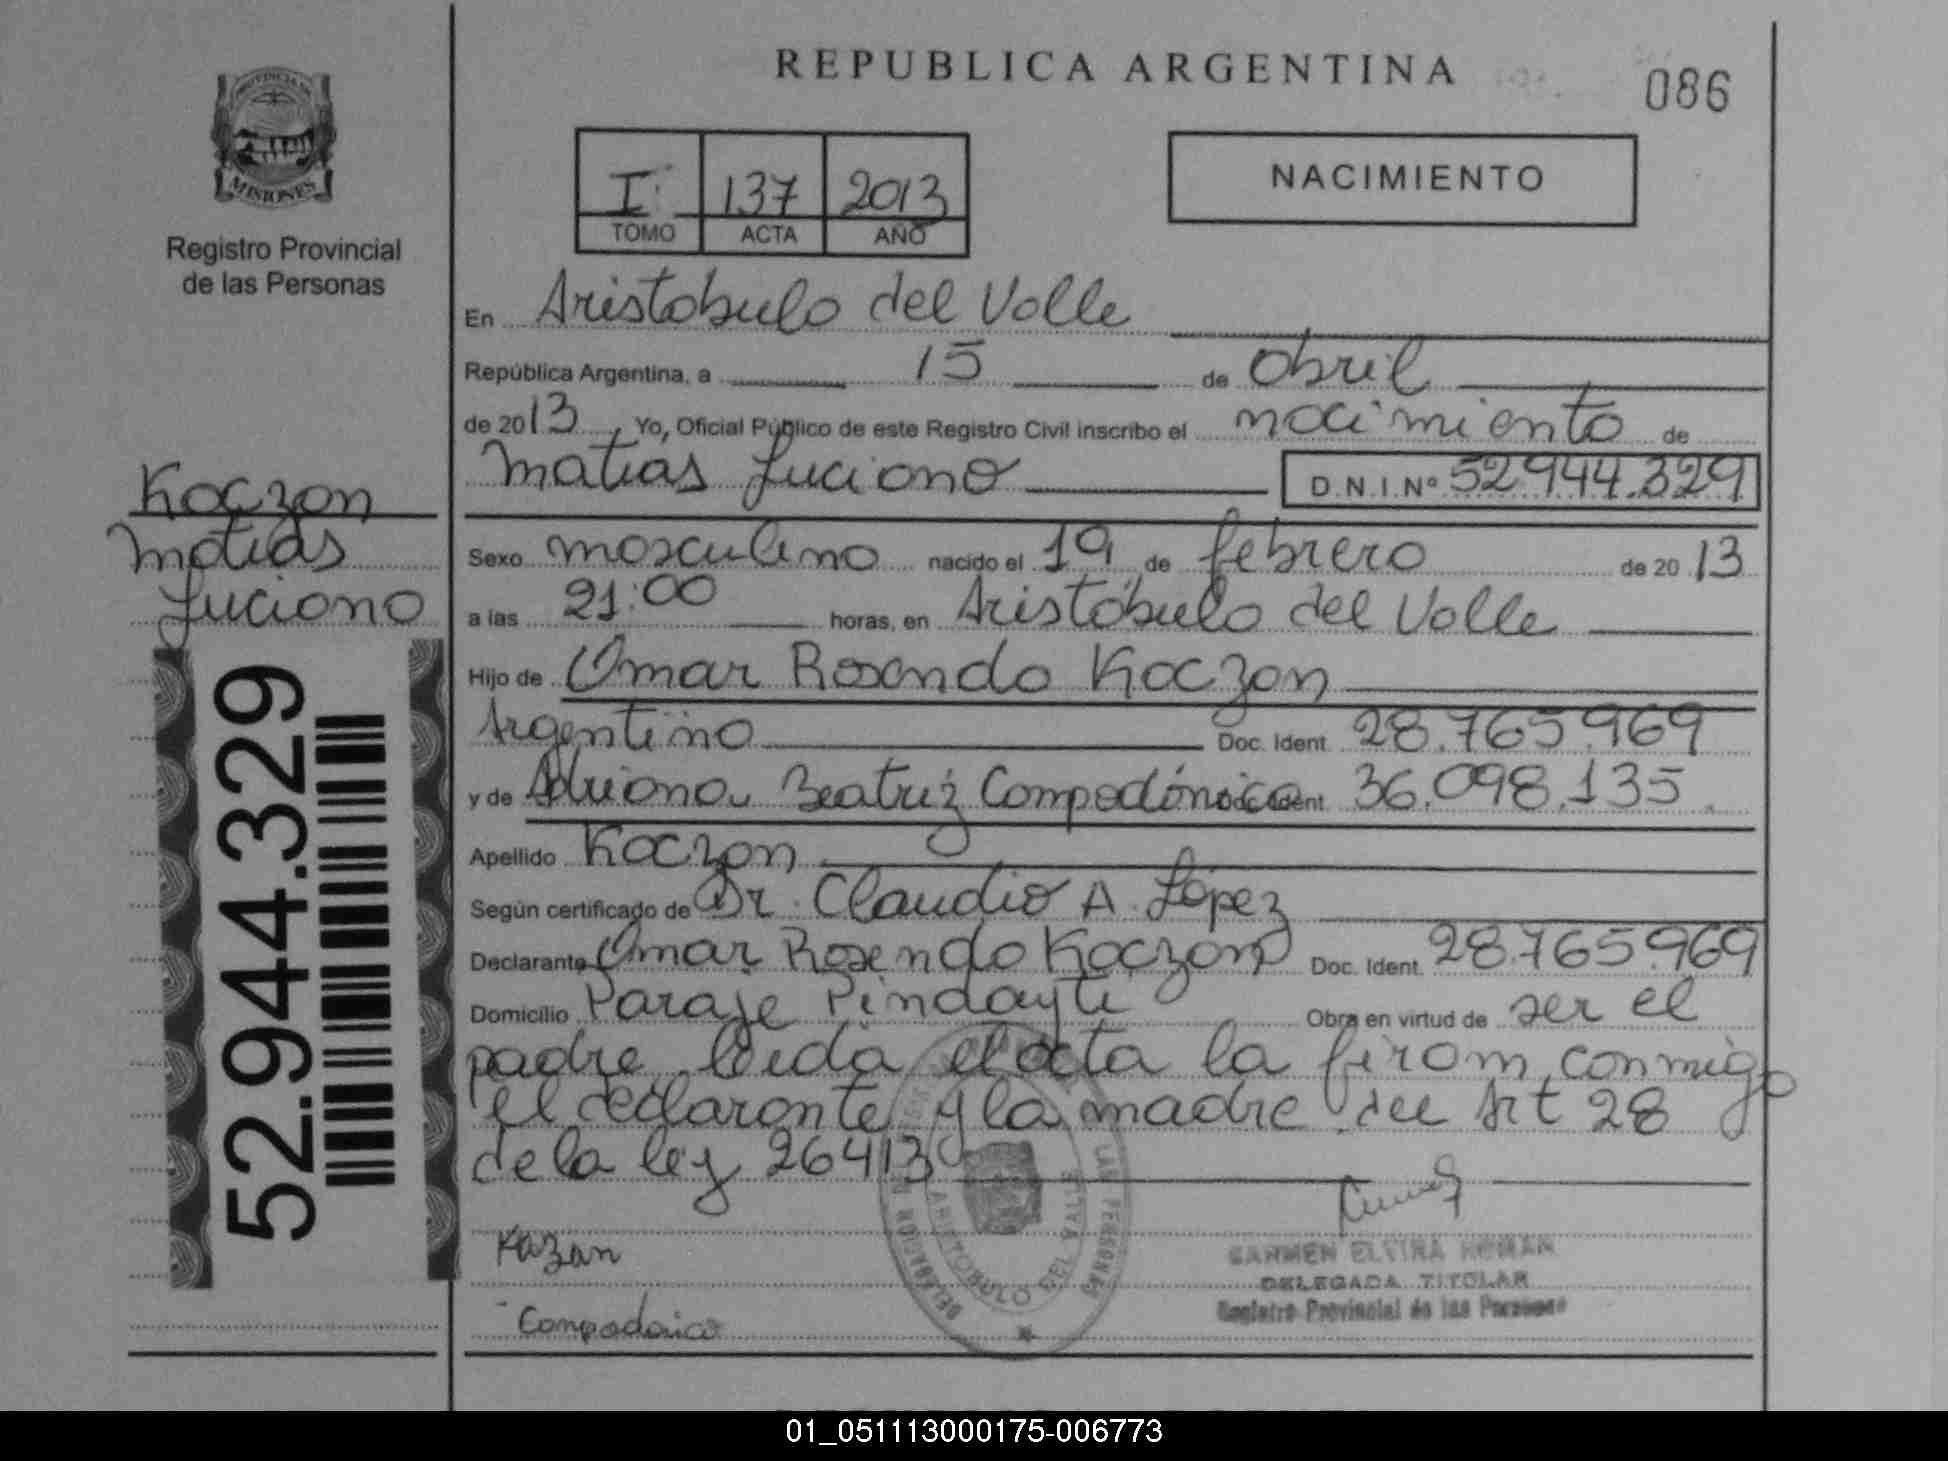 REPUBLICA ARGENTINA
086
PROVINCIA DE
MISIONES
Registro Provincial
de las Personas
I 137 2013
TOMO ACTA AÑO
NACIMIENTO
En Aristobulo del Valle
República Argentina, a 15 de abril
de 2013, Yo, Oficial Público de este Registro Civil inscribo el nacimiento de
Matias Luciano D.N.I.Nº 52.944.329
Koczan
Matias
Luciano
52.944.329
Sexo masculino nacido el 19 de febrero de 2013
a las 21:00 horas, en Aristóbulo del Valle
Hijo de Omar Rosendo Koczan
Argentino Doc. Ident. 28.765.969
y de Adriana Beatriz Campodónico Doc. Ident. 36.098.135
Apellido Koczan
Según certificado de Dr. Claudio A. López
Declarante Omar Rosendo Koczan Doc. Ident. 28.765.969
Domicilio Paraje Pindayti Obra en virtud de ser el
padre. Leida el acta la firam conmigo
el declarante y la madre del Art 28
de la ley 26413
Kazan
Campodonico
ARISTOBULO DEL VALLE
CARMEN ELVIRA ROMAN
DELEGADA TITULAR
Registro Provincial de las Personas
01_051113000175-006773